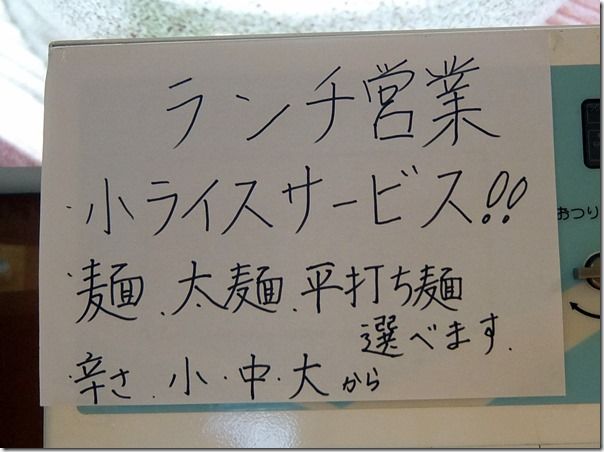 ランチ営業
・小ライスサービス!!
・麺、太麺、平打ち麺
選べます.
・辛さ、小・中・大から
おつり